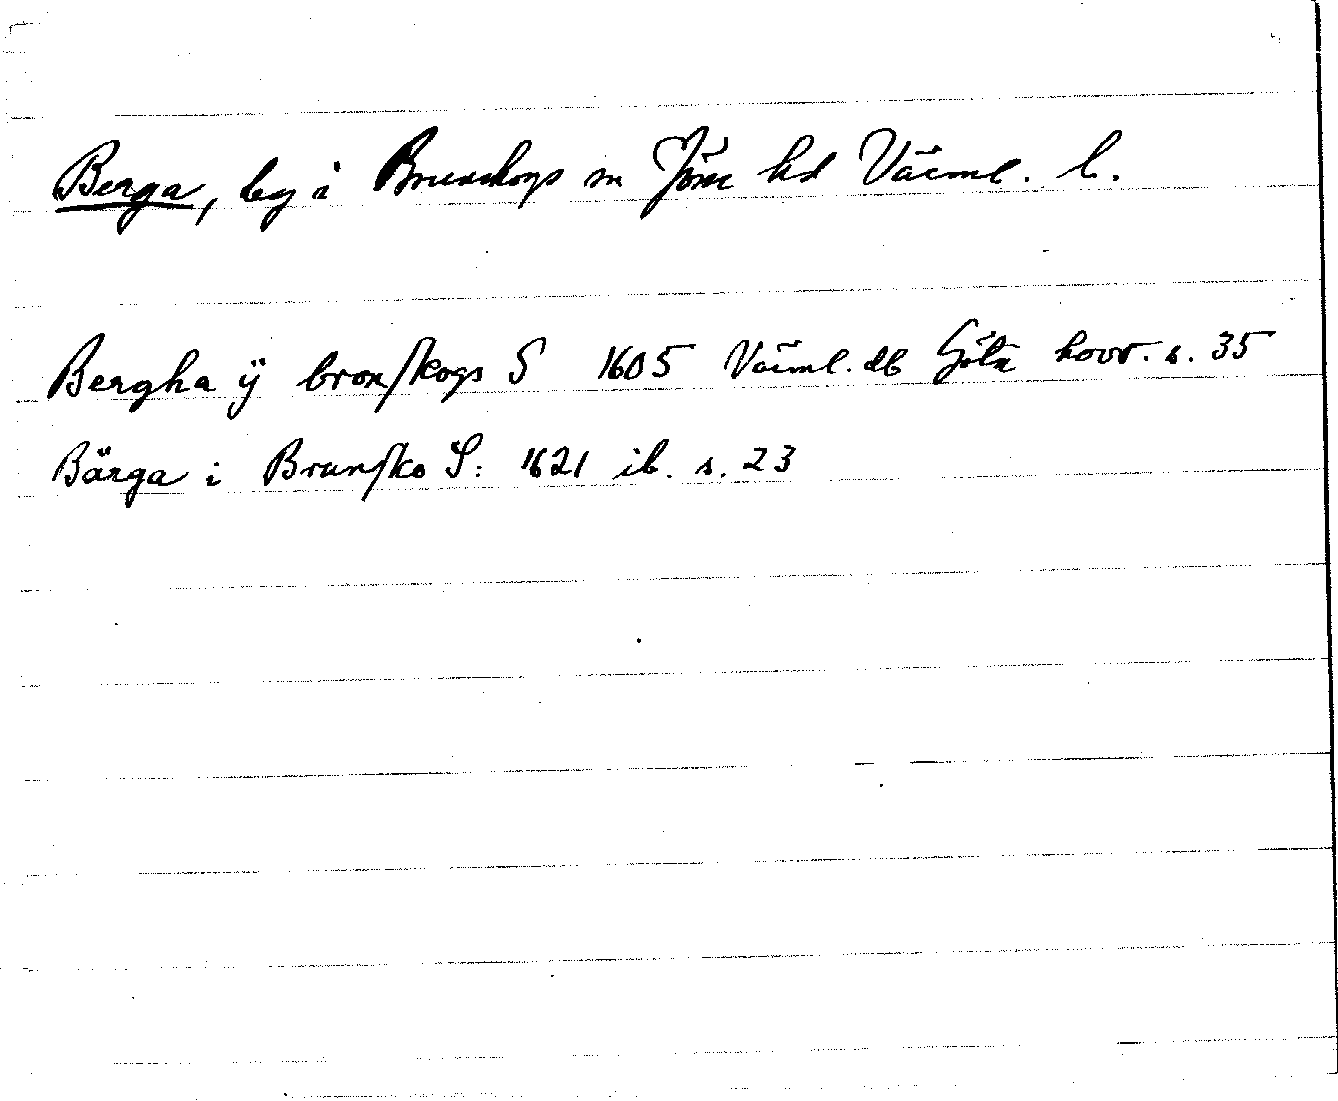 Berga, by i Brunskogs sn Jösse hd Värml. l.
Bergha ÿ bronſkogs S 1605 Värml. db Göta hovr. s. 35
Bärga i Brunſko S: 1621 ib. s. 23